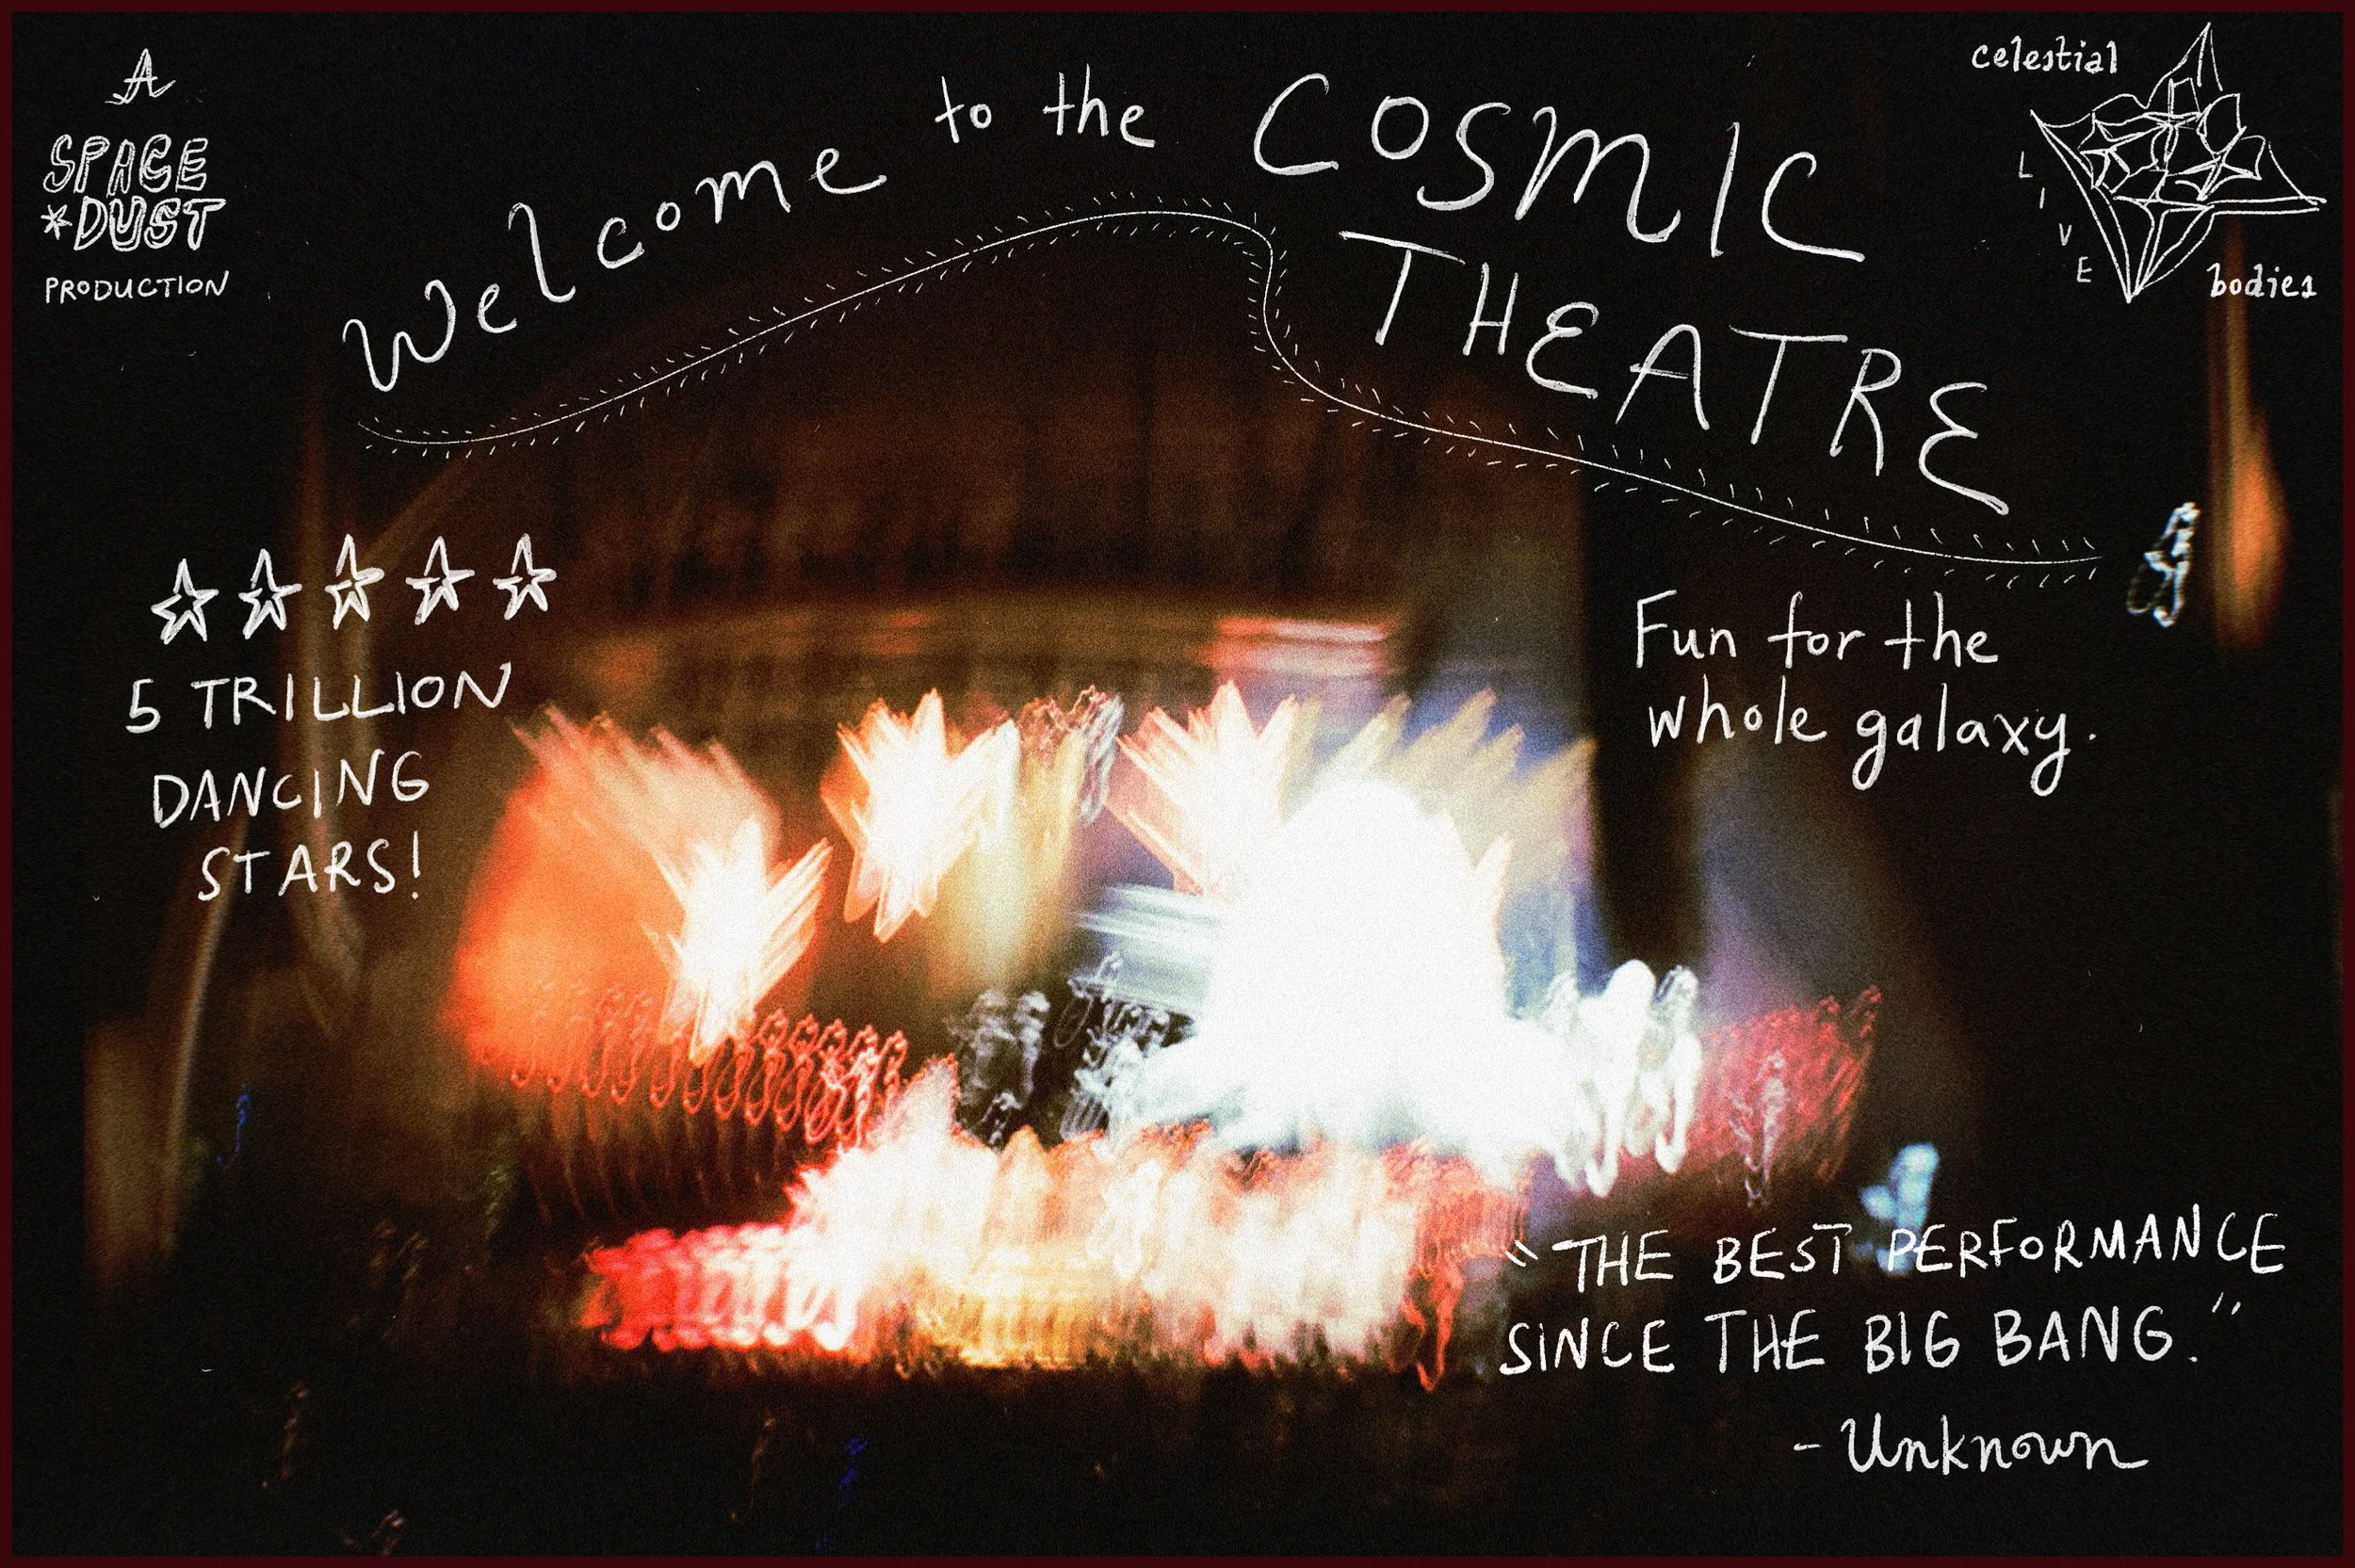 A
SPACE
*DUST
PRODUCTION
Welcome to the COSMIC
THEATRE
celestial
LIVE
bodies
5 TRILLION
DANCING
STARS!
Fun for the
whole galaxy.
"THE BEST PERFORMANCE
SINCE THE BIG BANG."
- Unknown